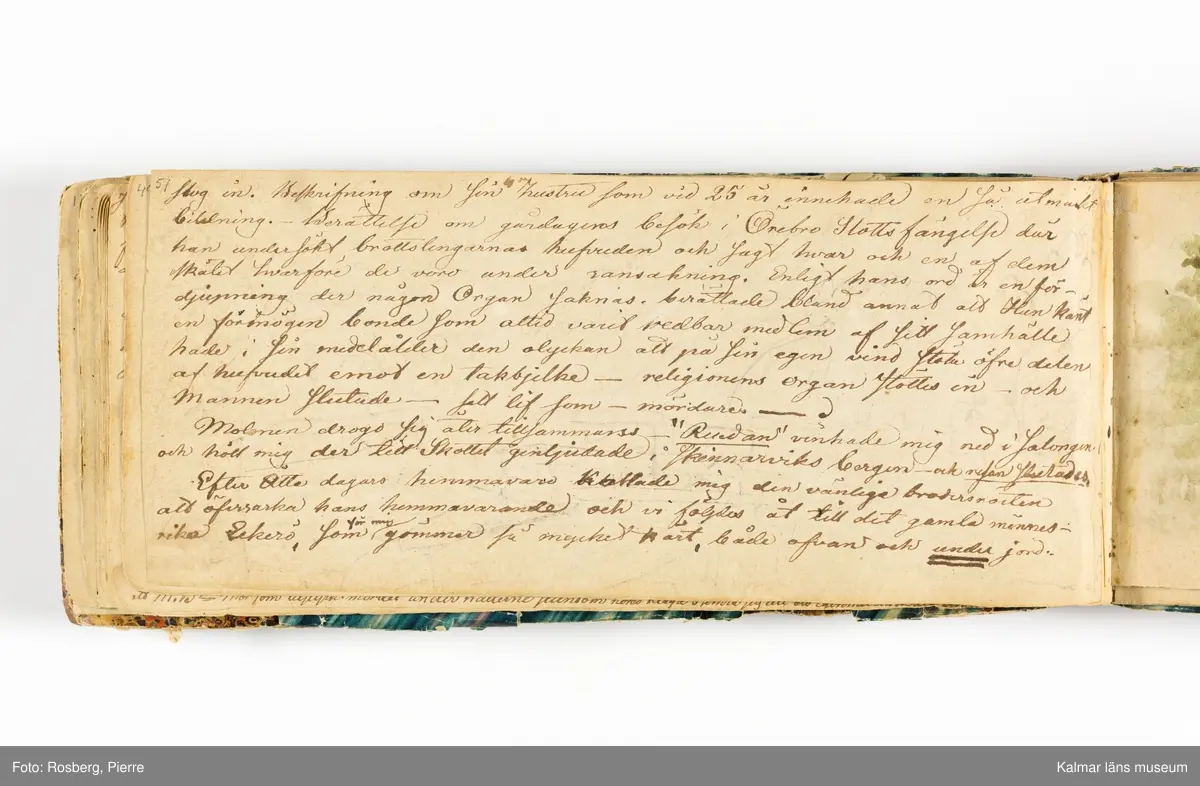 51
steg in. Beskrifning om sin Hustru som vid 25 år innehade en så utmärkt
bildning. – Berättelse om gårdagens besök i Örebro Slotts fängelse där
han undersökt brottslingarnas hufvuden och sagt hvar och en af dem
skälet hvarföre de voro under ransakning. Enligt hans ord är en för-
djupning der någon Organ saknas. berättade bland annat att Han känt
en förmögen bonde som altid varit redbar medlem af sitt samhälle
hade i sin medelålder den olyckan att på sin egen vind stöta öfre delen
af hufvudet emot en takbjelke – religionens organ stöttes in – och
Mannen slutade – sitt lif som – mördare –
Molnen drogo sig åter tillsammans – "Rusdan" vinkade mig ned i Salongen
och höll mig der till Skottet genljudade i Skinnarviks bergen – och resan slutades.
Efter Åtta dagars hemmavaro kallade mig den vänliga broders rösten
att öfverraska hans hemmavarande och vi följdes åt till det gamla minnes-
rika Ekerö, som för mig gömmer så mycket kärt, både ofvan och under jord.